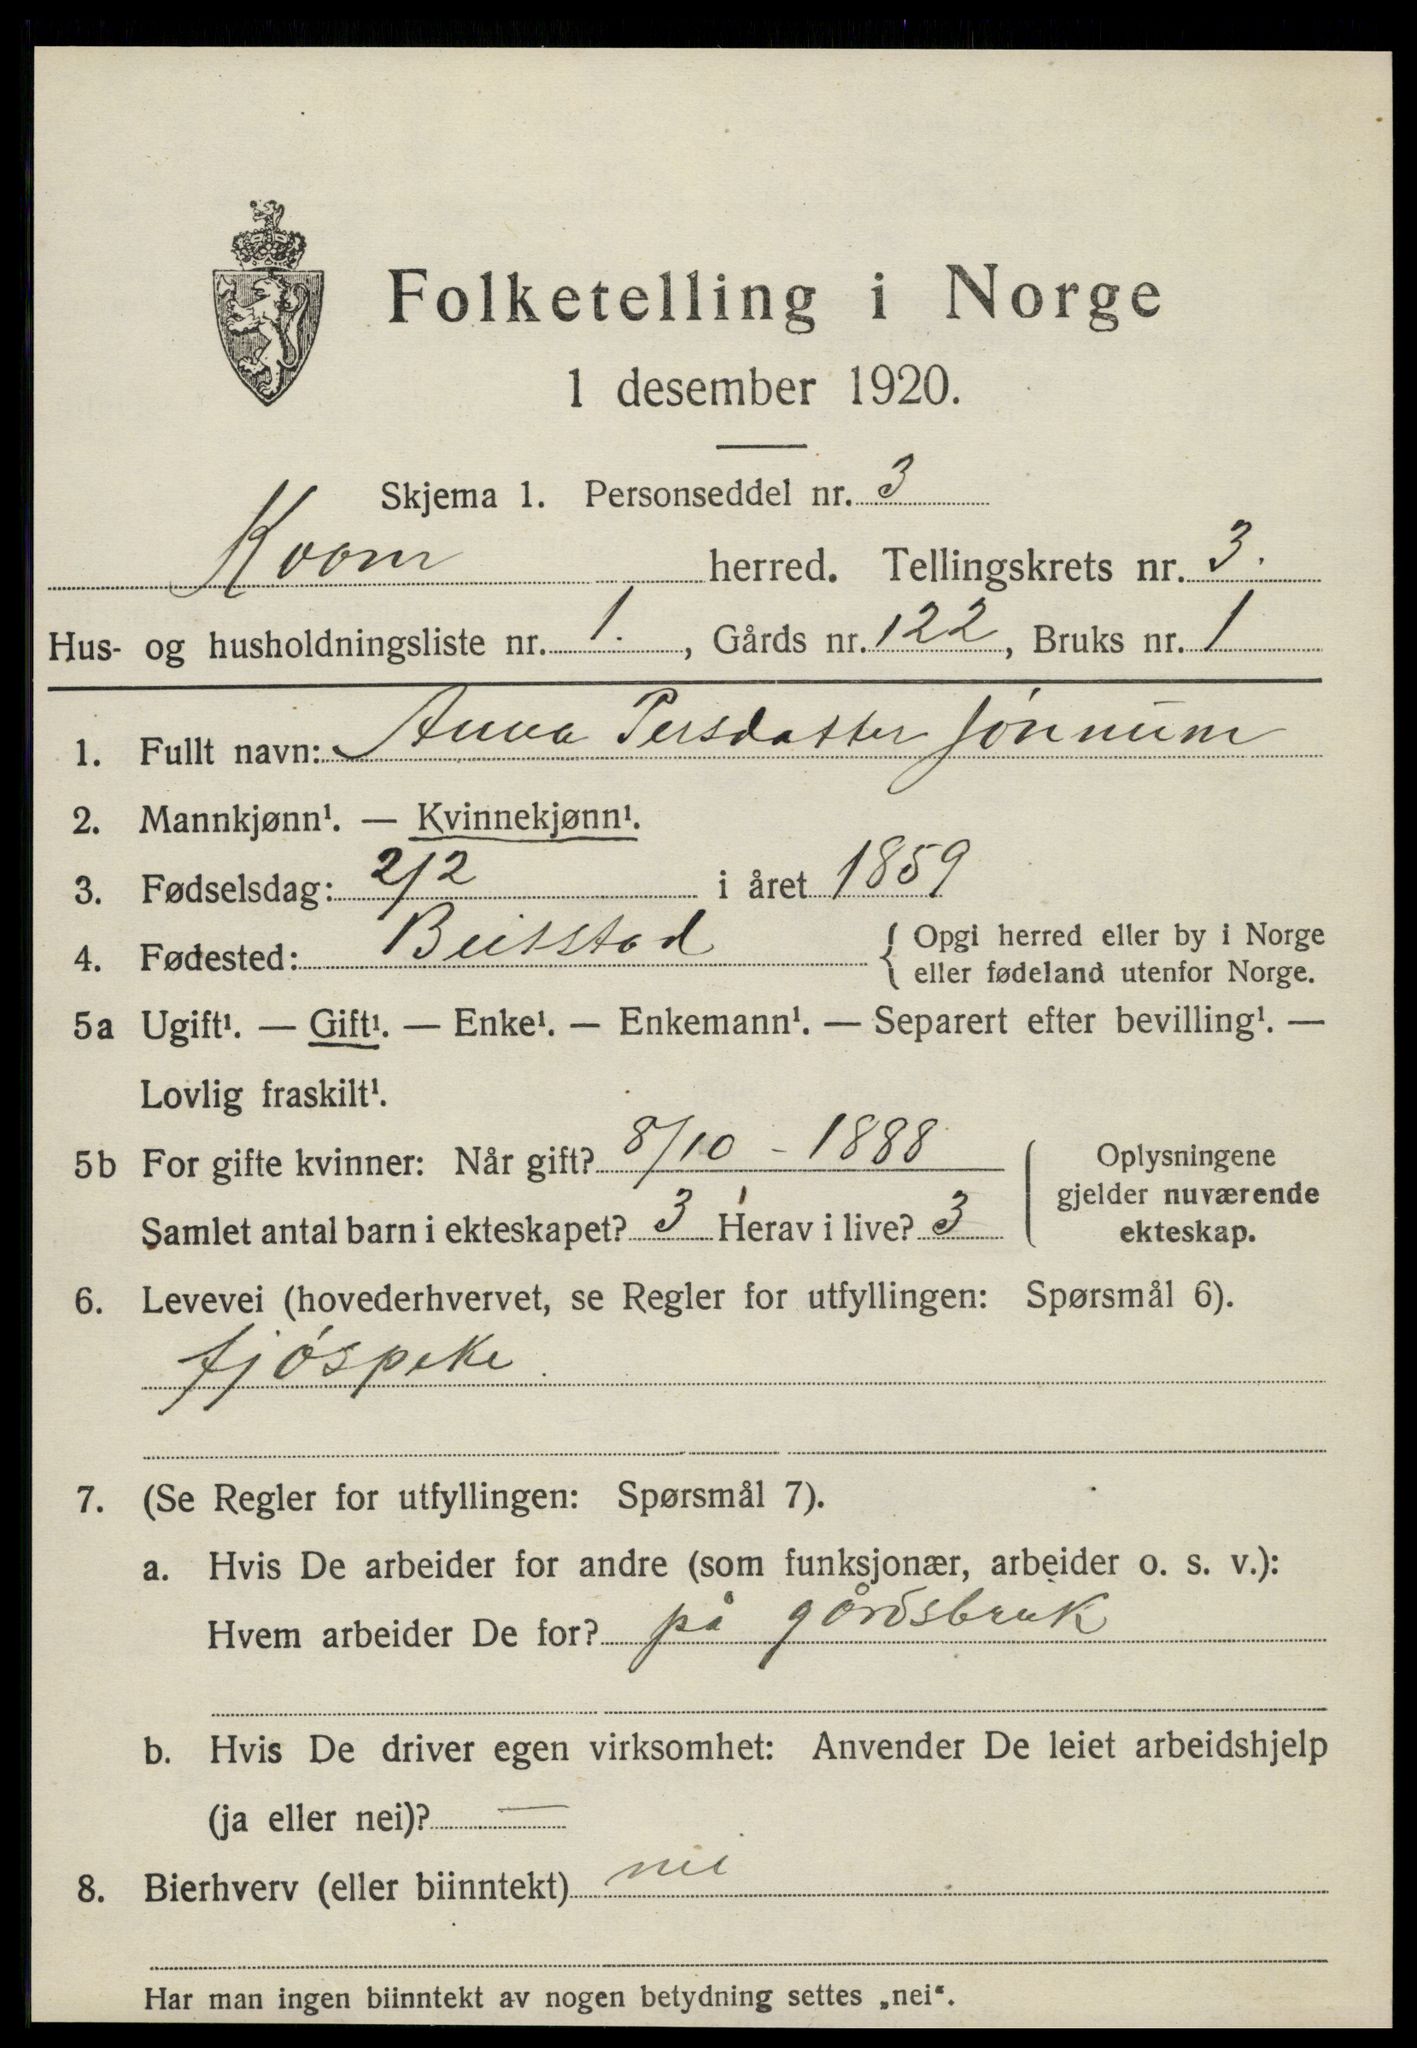 Folketelling i Norge
1 desember 1920.
Skjema 1. Personseddel nr. 3
Kvam herred. Tellingskrets nr. 3.
Hus- og husholdningsliste nr. 1. , Gårds nr. 122, Bruks nr. 1
1. Fullt navn: Anna Persdatter Jønnum
2. Mannkjønn¹. — Kvinnekjønn¹.
3. Fødselsdag: 2/2 i året 1859
4. Fødested: Beitstad { Opgi herred eller by i Norge
eller fødeland utenfor Norge.
5a Ugift¹. — Gift¹. — Enke¹. — Enkemann¹. — Separert efter bevilling¹. —
Lovlig fraskilt¹.
5b For gifte kvinner: Når gift? 8/10 - 1888
Samlet antal barn i ekteskapet? 3 Herav i live? 3
Oplysningene
gjelder nuværende
ekteskap.
6. Levevei (hovederhvervet, se Regler for utfyllingen: Spørsmål 6).
fjøspike.
7. (Se Regler for utfyllingen: Spørsmål 7).
a. Hvis De arbeider for andre (som funksjonær, arbeider o. s. v.):
Hvem arbeider De for? på gårdsbruk
b. Hvis De driver egen virksomhet: Anvender De leiet arbeidshjelp
(ja eller nei)? —
8. Bierhverv (eller biinntekt) nei
Har man ingen biinntekt av nogen betydning settes „nei“.